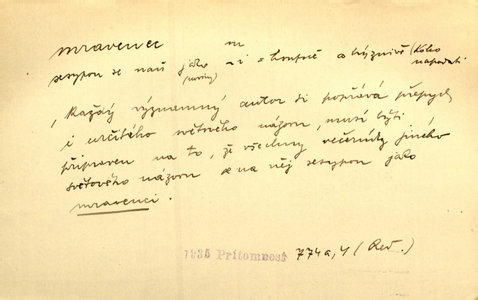 mravenec m.
sesypou se naň jako – i – hromadně a hryznivě (koho
(mršiny) napadati
„Každý významný autor si popřává přepych
i určitého světového názoru, musí býti
připraven na to, že všechny večerníky jiného
světového názoru se na něj sesypou jako
mravenci.
1935 Přítomnost 774a, 4 (Red.)